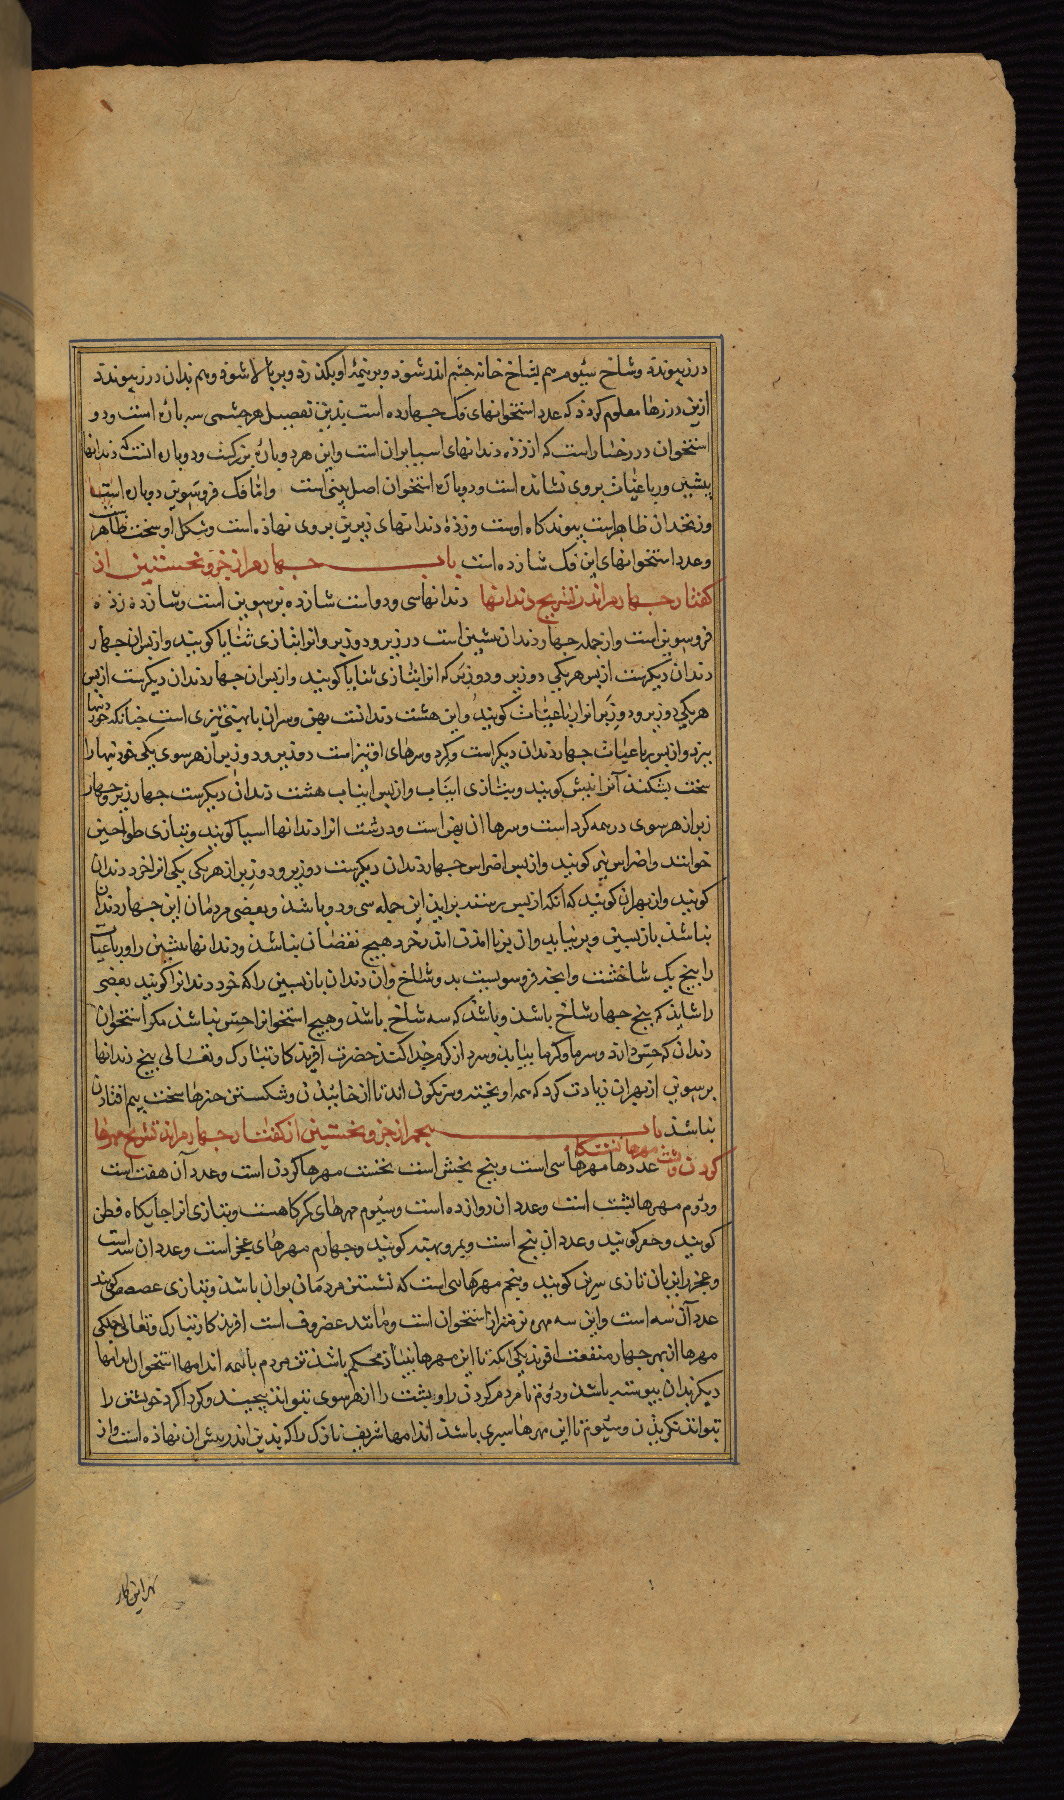 درز پیوندد و شاخ سیّوم هم بشاخ خانه چشم اندر شود و بر نیمهٔ او بگذرد و بر بالا شود و هم بدان درز پیوندد
ازین درزها معلوم کردد که عدد استخوانهای فک چهارده است بدین تفصیل هر چشمی سه پاره است و دو
استخوان در رخسار است که از زده دندانهای اسیا بران است و این هر دو پاره بزرکست و دو پاره انست که دندانها
پیشین و رباعیات بروی نشانده است و دو پاره استخوان اصل بینی است و امّا فک فروسوین دو پاره است
و زنخدان ظاهراست پیوندکاه اوست و زذهٔ دندانهای زیرین بروی نهاذه است و شکل او سخت ظاهر است
و عدد استخوانهای این فک شازده است باب چهارم از جزو نخستین از
کفتار چهارم اندر تشریح دندانها دندانها سی و دو است شازده بر سوین است و شازده زده
فروسوین است و از جمله چهار دندان پیشین است در زیر و دو زبر و انرا بتازی ثنایا کویند و از پس ان چهار
دندان دیکرست از پس هر یکی دو زیر و دو زبر که انرا بتازی ثنایا کویند و از پس ان چهار دندان دیکرست از پس
هر یکی دو زیر و دو زبر انرا رباعیات کویند و این هشت دندانست پهن و سران باپهنی تیزی است چنانکه خوردنیها
ببرد و از پس رباعیات چهار دندان دیکر است و کرد و سرهای او تیز است دو زیر و دو زبر از هر سوی یکی خوردنیها را
سخت بشکند آنرا نیش کویند و بتازی انیاب و از پس انیاب هشت دندان دیکرست چهار زیر و چهار
زبر از هر سوی در همه کرد است و سرها ان پهن است و درشت انرا دندانها اسیا کویند و بتازی طواحین
خوانند و اضراس نیز کویند و از پس اضراس چهار دندان دیکرست دو زیر و دو زبر از هر یکی یکی انرا خرد دندان
کویند و از بهر ان کویند که انکه از پس رستند براین این جمله سی و دو باشد و بعضی مردمان این چهار دندان
نباشد بازپسین و برنیاید و ان برنا امدن اندر خرد هیچ نقصان نباشد و دندانها پیشین را و رباعیات
را بیخ یک شاخست و انچه فروسویست بدو شاخ و ان دندان بازپسین را که خرد دندانرا کویند بعضی
را شاید که بیخ چهار شاخ باشد و باشد که سه شاخ باشد و هیچ استخوانرا حس نباشد مکر استخوان
دندان که حس دارد و سرما و کرما بیابد و سرد از کرم جدا کند حضرت افریدکار تبارک و تعالی بیخ دندانها
بر سوین از بهر ان زیادت کرد که همه اویخته و سرنکون اند تا از خاییدن و شکستن چیزها سخت بیم افتادن
نباشد باب پنجم از جزو نخستین از کفتار چهارم اندر تشریح مهرها
کردن و پشت مهرها نشستکاه عددها مهرها سی است و پنج بخش است نخست مهرها کردن است و عدد آن هفت است
و دوم مهرها پشت است و عدد ان دوازده است و سیوم مهرهای کمرکاهست و بتازی انرا جایکاه قطن
کویند و حقو کویند و عدد ان پنج است و چهارم مهرهای عجز است و عدد ان سه است
و عجز را این بان تازی سرین کویند و پنجم مهرهایی است که نشستن مردمان بران باشد و بتازی عصعص کویند
عدد آن سه است و این سه مهره نرمتر از استخوان است و مانند غضروف است افریدکار تبارک و تعالی جملکی
مهرها از بهر چهار منفعت افرید یکی انکه تا این مهرها بنیاد محکم باشد تن مردم با همه اندامها استخوان اندامها
دیکر بدان پیوسته باشد و دوم تا مردم کردن را و پشت را از هر سوی بتواند پیچید و کرد اکرد خویشتن را
بتواند نکریدن و سیوم تا این مهرها سپری باشد اندامها شریف نازک را که بدین اندر پیش ان نهاده است و از
بهر این کار